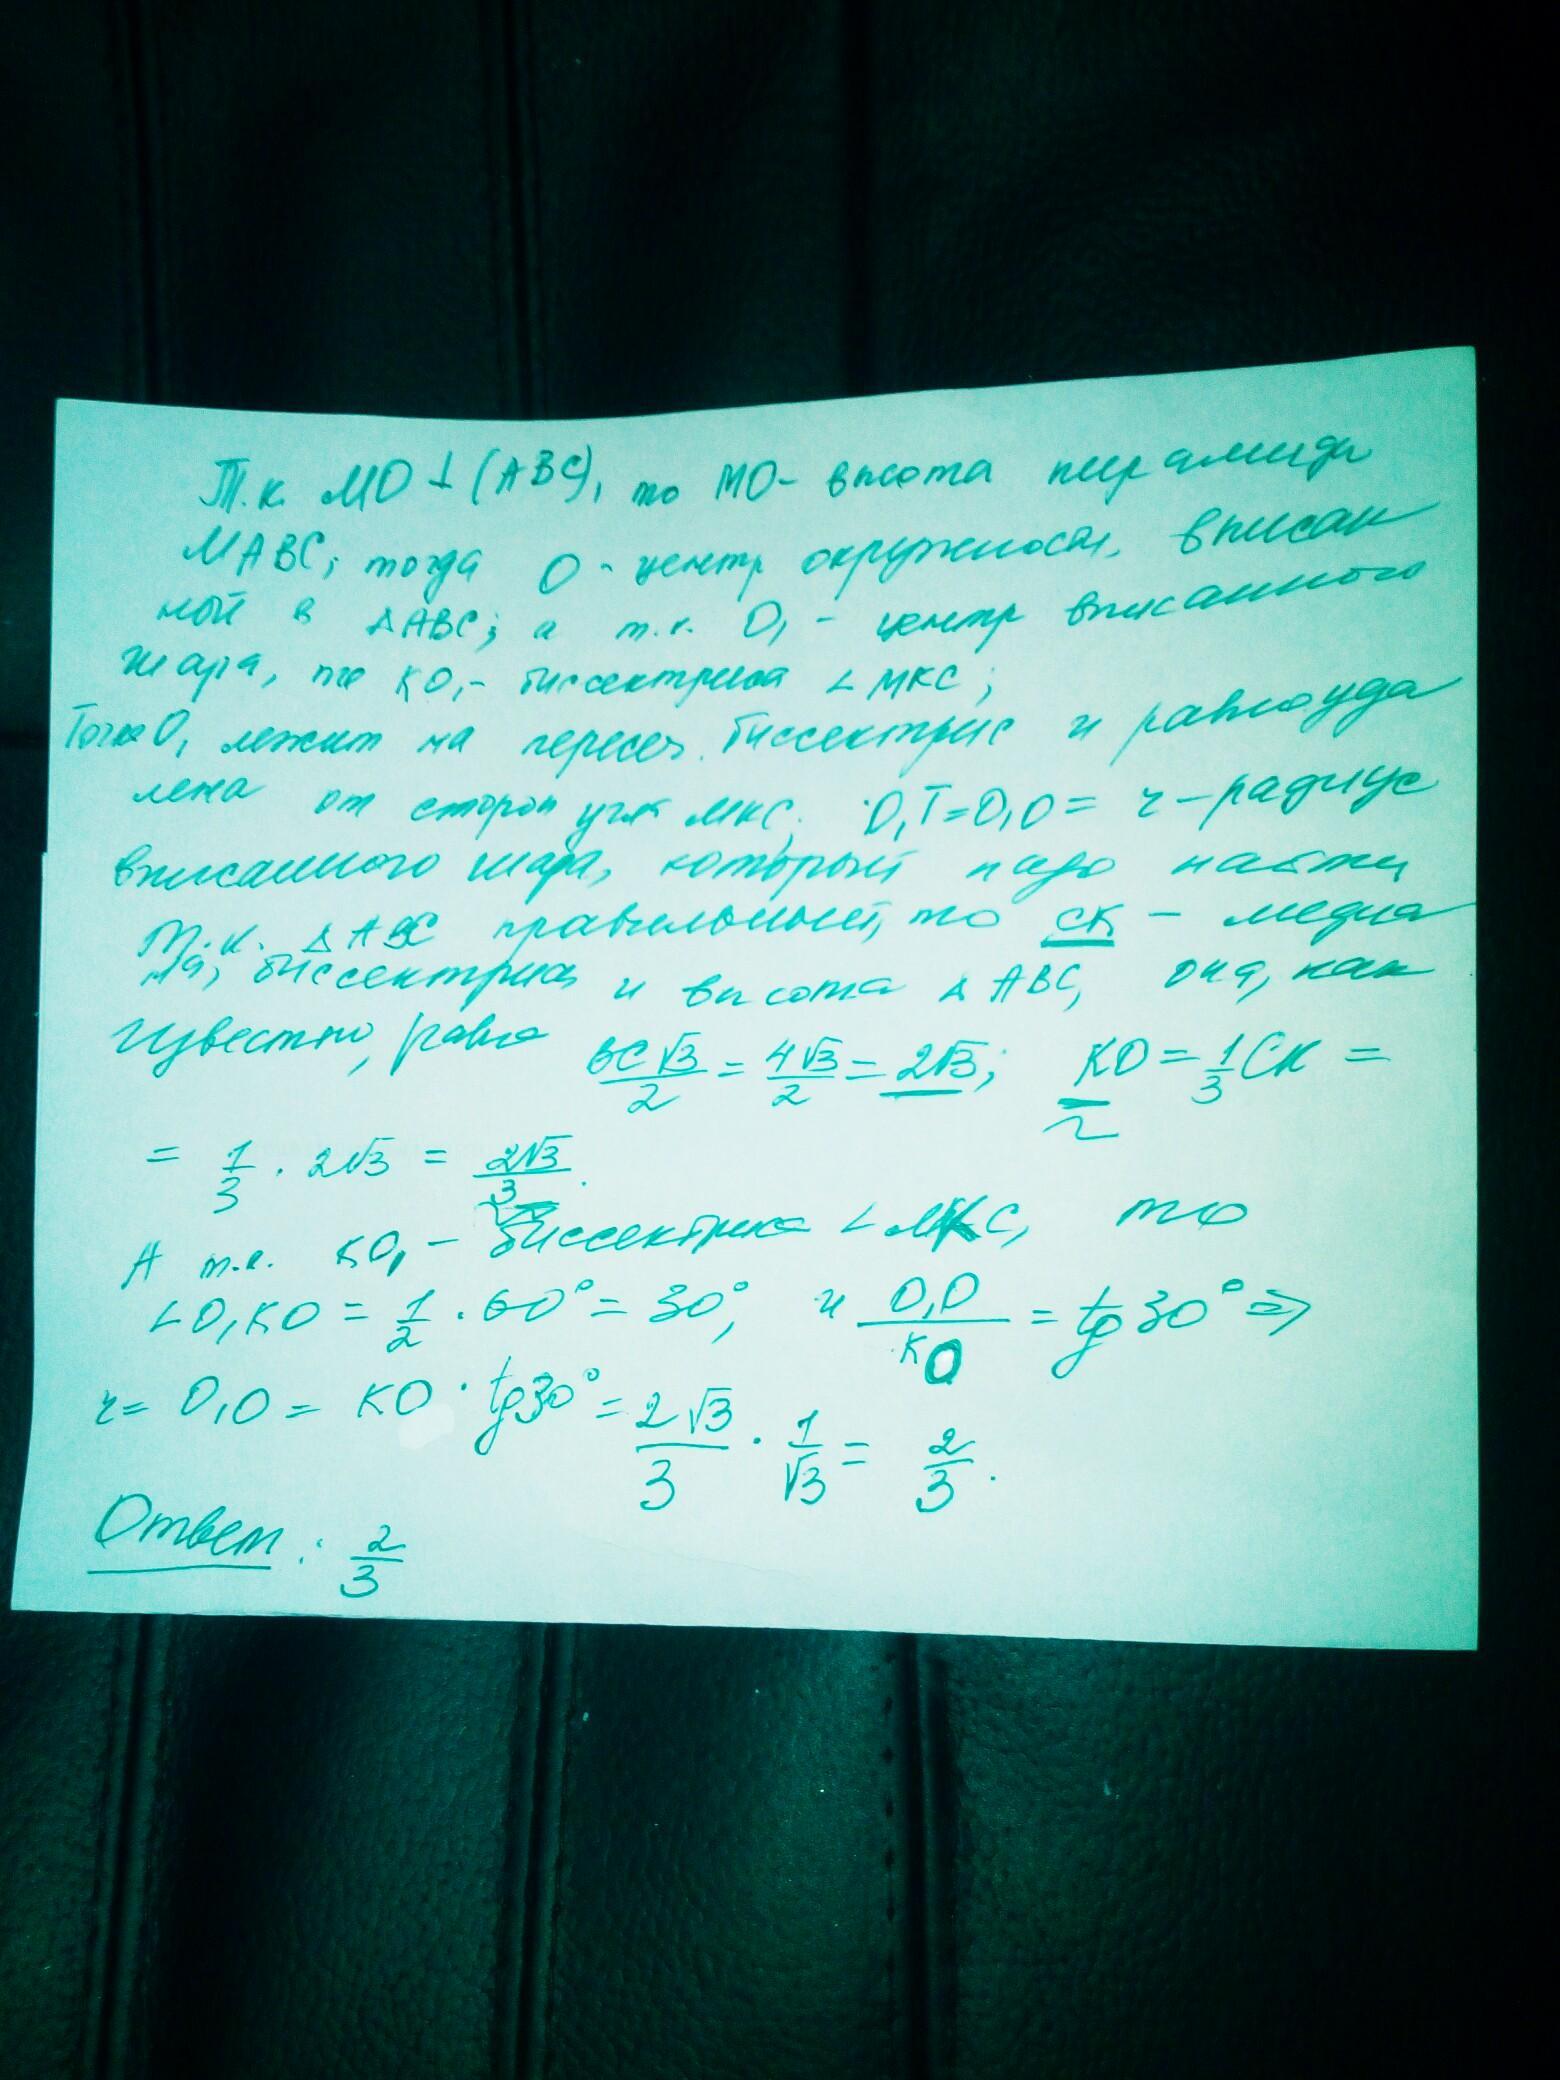 Т.к. MO ⊥ (ABC), то MO - высота пирамиды
MABC; тогда O - центр окружности, вписан
ной в △ABC; а т.к. O₁ - центр вписанного
шара, то KO₁ - биссектриса ∠MKC;
Точка O₁ лежит на пересеч. биссектрис и равноуда
лена от сторон угла MKC; O₁T = O₁O = r - радиус
вписанного шара, который надо найти
Т.к. △ABC правильный, то CK - медиа
на, биссектриса и высота △ABC, она, как
известно, равна BC√3/2 = 4√3/2 = 2√3; KO = 1/3 CK =
= 1/3 · 2√3 = 2√3/3.
А т.к. KO₁ - биссектриса ∠MKC, то
∠O₁KO = 1/2 · 60° = 30°, и O₁O/KO = tg 30° ⇒
r = O₁O = KO · tg30° = 2√3/3 · 1/√3 = 2/3.
Ответ: 2/3